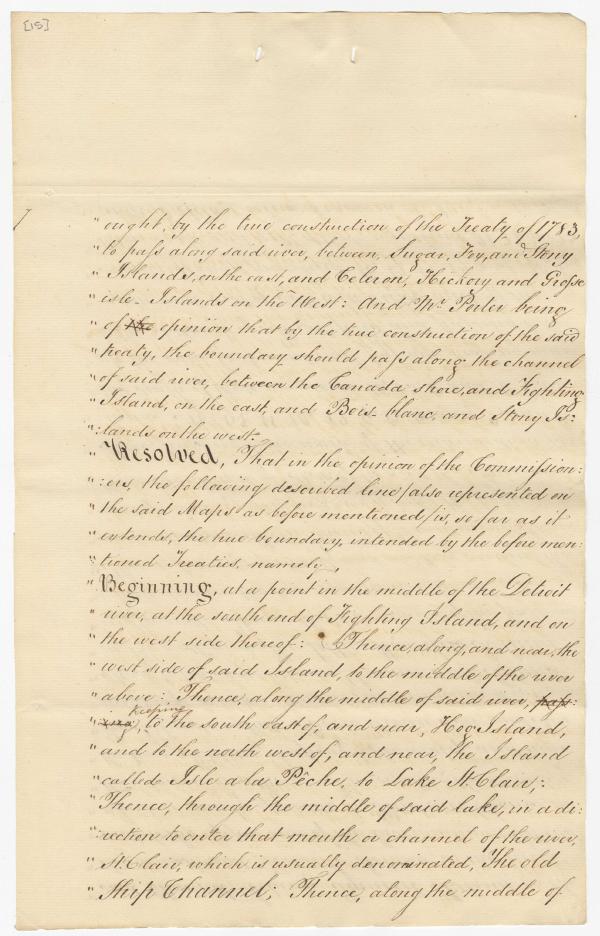 [15]
" ought, by the true construction of the Treaty of 1783,
" to pass along said river, between, Sugar, Foy, and Stony
" Islands, on the east, and Celeron, Hickory and Grosse
" isle - Islands on the West: And Mr. Porter being
" of the opinion that by the true construction of the said
" treaty, the boundary should pass along the channel
" of said river, between the Canada shore, and Fighting
" Island, on the east, and Bois-blanc, and Stony Is:
" :lands on the west.
" Resolved, That in the opinion of the Commission:
" :ers, the following described line /also represented on
" the said Maps as before mentioned/ is, so far as it
" extends, the true boundary, intended by the before men:
" :tioned Treaties, namely,
" Beginning, at a point in the middle of the Detroit
" river, at the south end of Fighting Island, and on
" the west side thereof: Thence, along, and near, the
" west side of said Island, to the middle of the river
" above: Thence, along the middle of said river, pass:
keeping
" :ing, to the south east of, and near, Hog Island,
" and to the north west of, and near, the Island
" called Isle a la Pêche, to Lake St. Clair,:
" Thence, through the middle of said lake, in a di:
" :rection to enter that mouth or channel of the river,
" St. Clair, which is usually denominated, The old
" Ship Channel; Thence, along the middle of